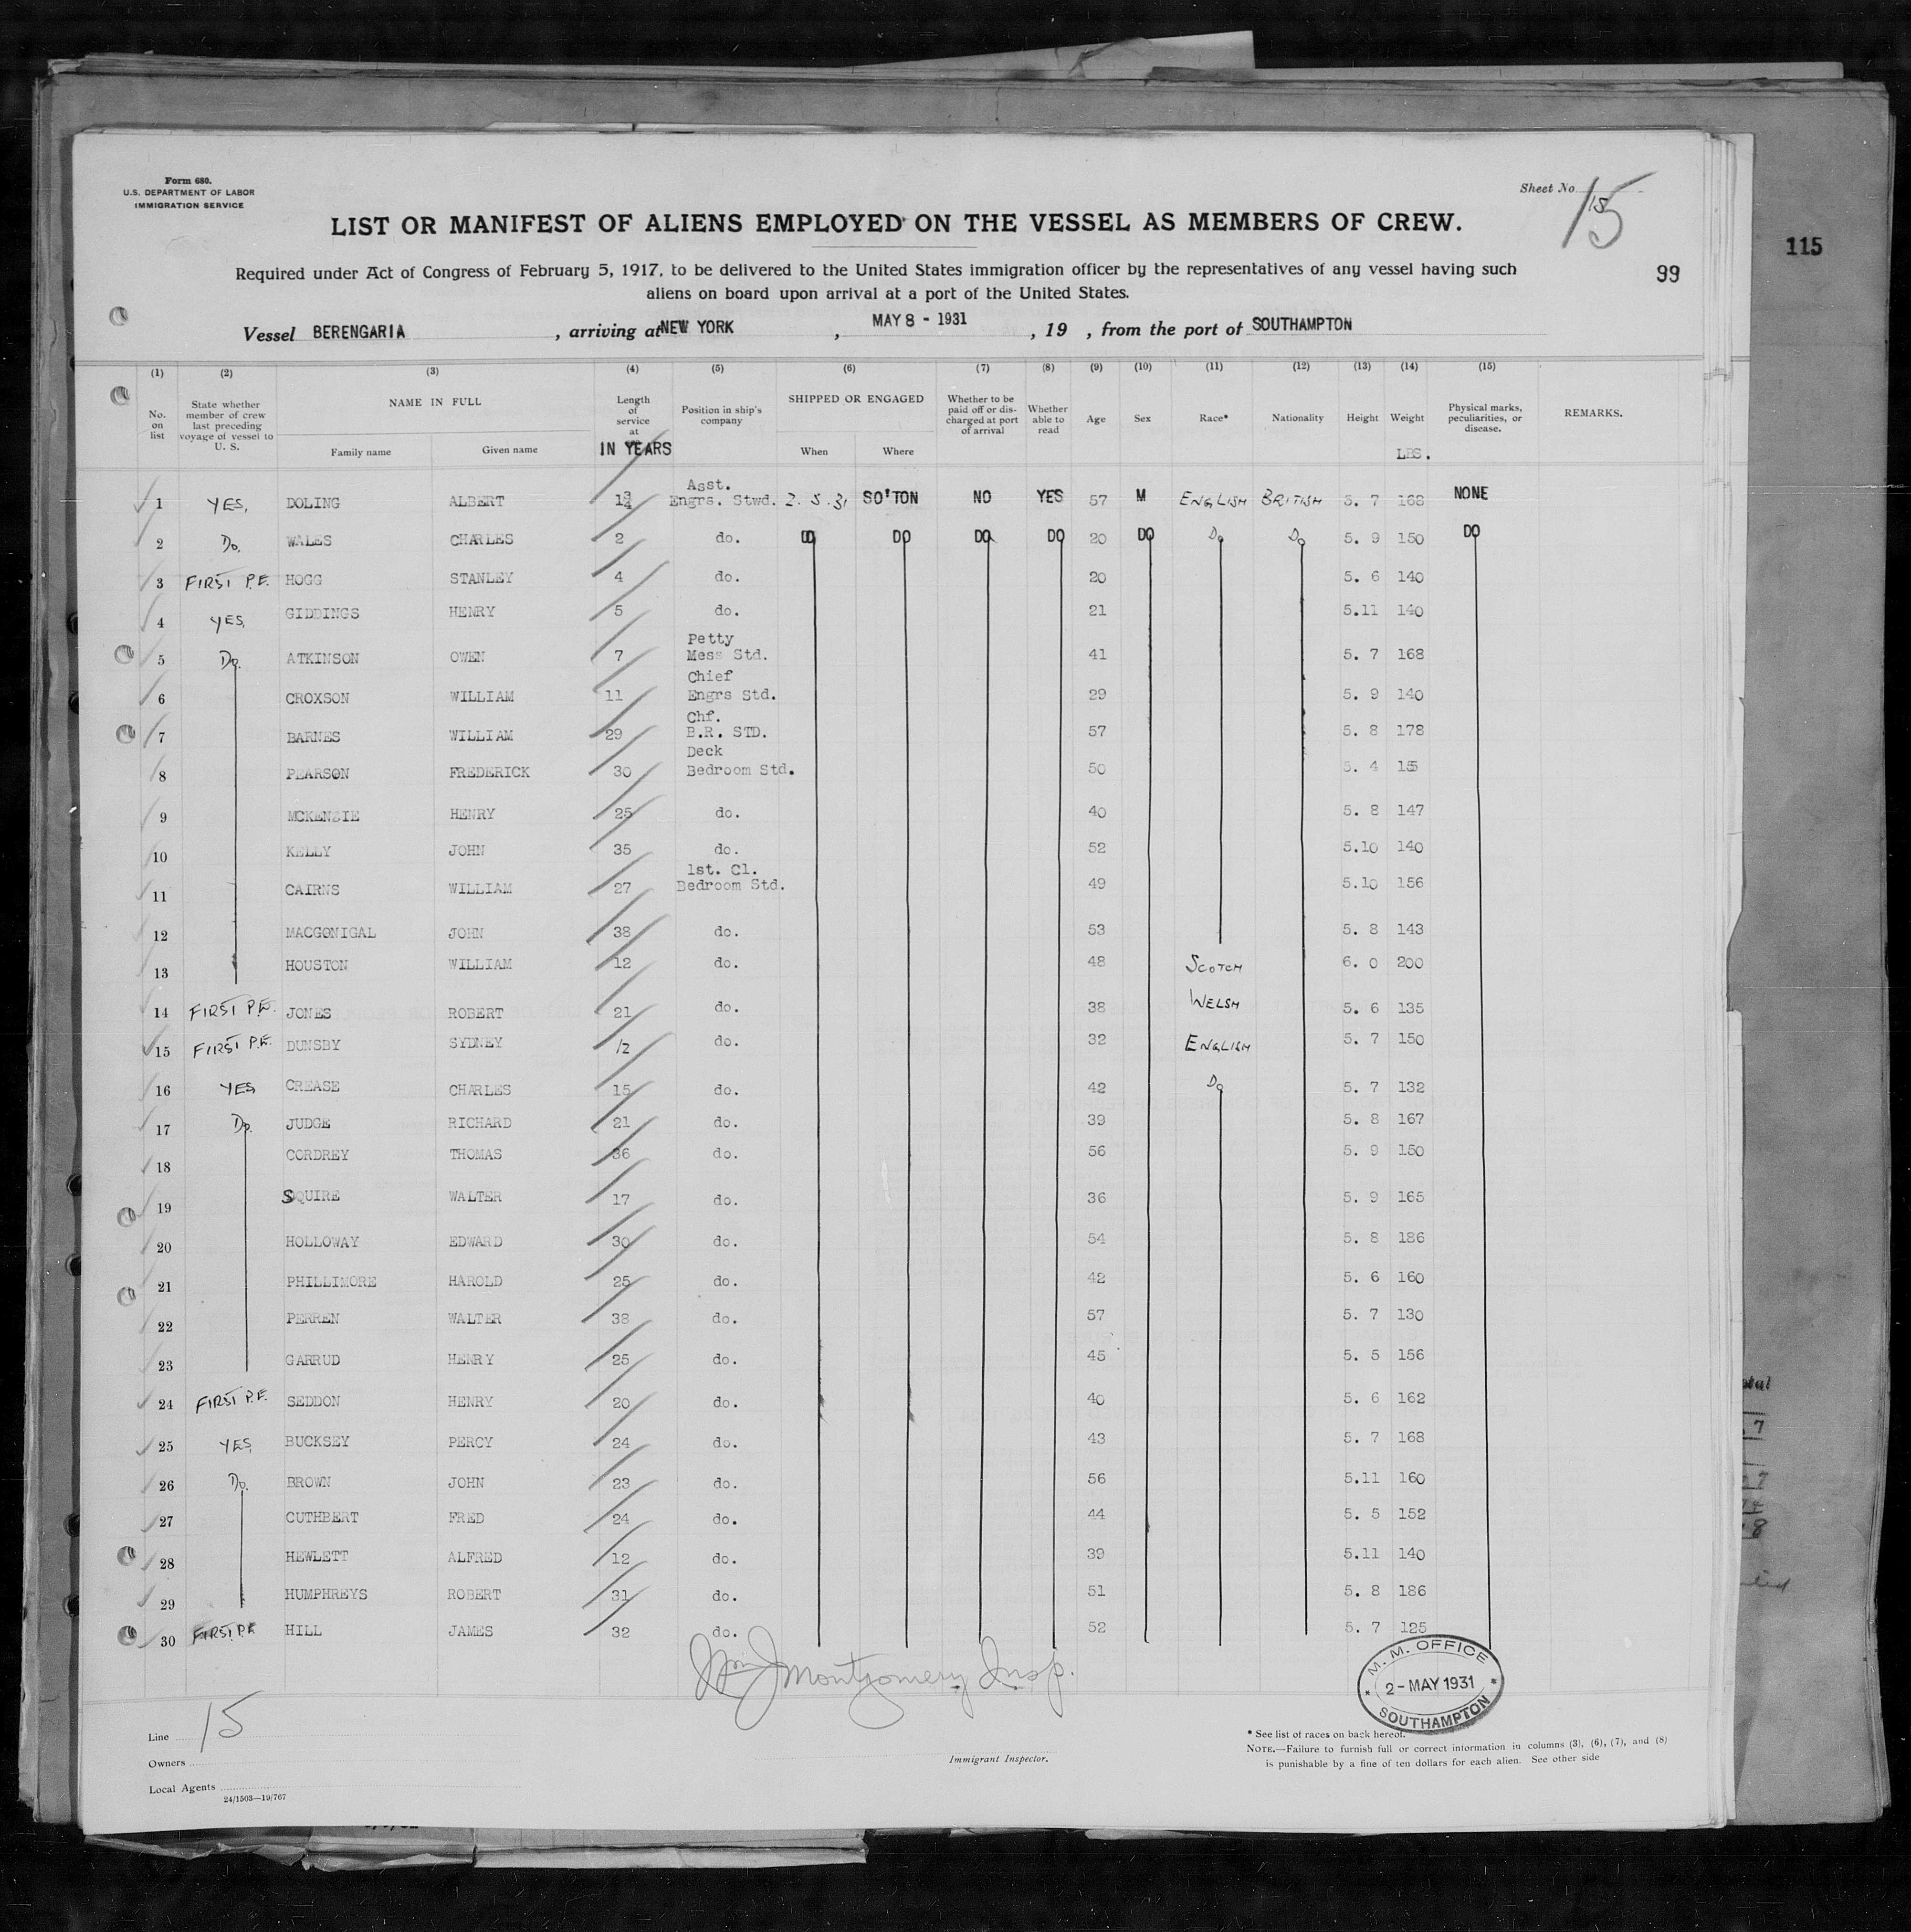 Form 680.
U.S. DEPARTMENT OF LABOR
IMMIGRATION SERVICE
Sheet No. 15
15
LIST OR MANIFEST OF ALIENS EMPLOYED ON THE VESSEL AS MEMBERS OF CREW.
115
Required under Act of Congress of February 5, 1917, to be delivered to the United States immigration officer by the representatives of any vessel having such
99
aliens on board upon arrival at a port of the United States.
Vessel BERENGARIA, arriving at NEW YORK, MAY 8 - 1931, 19 , from the port of SOUTHAMPTON
(1) (2) (3) (4) (5) (6) (7) (8) (9) (10) (11) (12) (13) (14) (15)
No. on list State whether member of crew last preceding voyage of vessel to U. S. NAME IN FULL Family name Given name Length of service at IN YEARS Position in ship's company SHIPPED OR ENGAGED When Where Whether to be paid off or discharged at port of arrival Whether able to read Age Sex Race* Nationality Height Weight LBS. Physical marks, peculiarities, or disease. REMARKS.
1 YES, DOLING ALBERT 1¾ Asst. Engrs. Stwd. 2.5.31 SO'TON NO YES 57 M ENGLISH BRITISH 5. 7 168 NONE
2 Do. WALES CHARLES 2 do. DO DO DO DO 20 DO Do Do 5. 9 150 DO
3 FIRST P.E. HOGG STANLEY 4 do. 20 5. 6 140
4 YES, GIDDINGS HENRY 5 do. 21 5.11 140
5 Do. ATKINSON OWEN 7 Petty Mess Std. 41 5. 7 168
6 CROXSON WILLIAM 11 Chief Engrs Std. 29 5. 9 140
7 BARNES WILLIAM 29 Chf. B.R. STD. 57 5. 8 178
8 PEARSON FREDERICK 30 Deck Bedroom Std. 50 5. 4 15
9 MCKENZIE HENRY 25 do. 40 5. 8 147
10 KELLY JOHN 35 do. 52 5.10 140
11 CAIRNS WILLIAM 27 1st. Cl. Bedroom Std. 49 5.10 156
12 MACGONIGAL JOHN 38 do. 53 5. 8 143
13 HOUSTON WILLIAM 12 do. 48 SCOTCH 6. 0 200
14 FIRST P.E. JONES ROBERT 21 do. 38 WELSH 5. 6 135
15 FIRST P.E. DUNSBY SYDNEY /2 do. 32 ENGLISH 5. 7 150
16 YES CREASE CHARLES 15 do. 42 Do 5. 7 132
17 Do. JUDGE RICHARD 21 do. 39 5. 8 167
18 CORDREY THOMAS 36 do. 56 5. 9 150
19 SQUIRE WALTER 17 do. 36 5. 9 165
20 HOLLOWAY EDWARD 30 do. 54 5. 8 186
21 PHILLIMORE HAROLD 25 do. 42 5. 6 160
22 PERREN WALTER 38 do. 57 5. 7 130
23 GARRUD HENRY 25 do. 45 5. 5 156
24 FIRST P.E. SEDDON HENRY 20 do. 40 5. 6 162
25 YES, BUCKSEY PERCY 24 do. 43 5. 7 168
26 Do. BROWN JOHN 23 do. 56 5.11 160
27 CUTHBERT FRED 24 do. 44 5. 5 152
28 HEWLETT ALFRED 12 do. 39 5.11 140
29 HUMPHREYS ROBERT 31 do. 51 5. 8 186
30 FIRST P.E. HILL JAMES 32 do. 52 5. 7 125
Wm J Montgomery Insp.
M. M. OFFICE
2 - MAY 1931
SOUTHAMPTON
Line 15
Owners
Local Agents
24/1503—19/767
Immigrant Inspector.
* See list of races on back hereof.
NOTE.—Failure to furnish full or correct information in columns (3), (6), (7), and (8)
is punishable by a fine of ten dollars for each alien. See other side